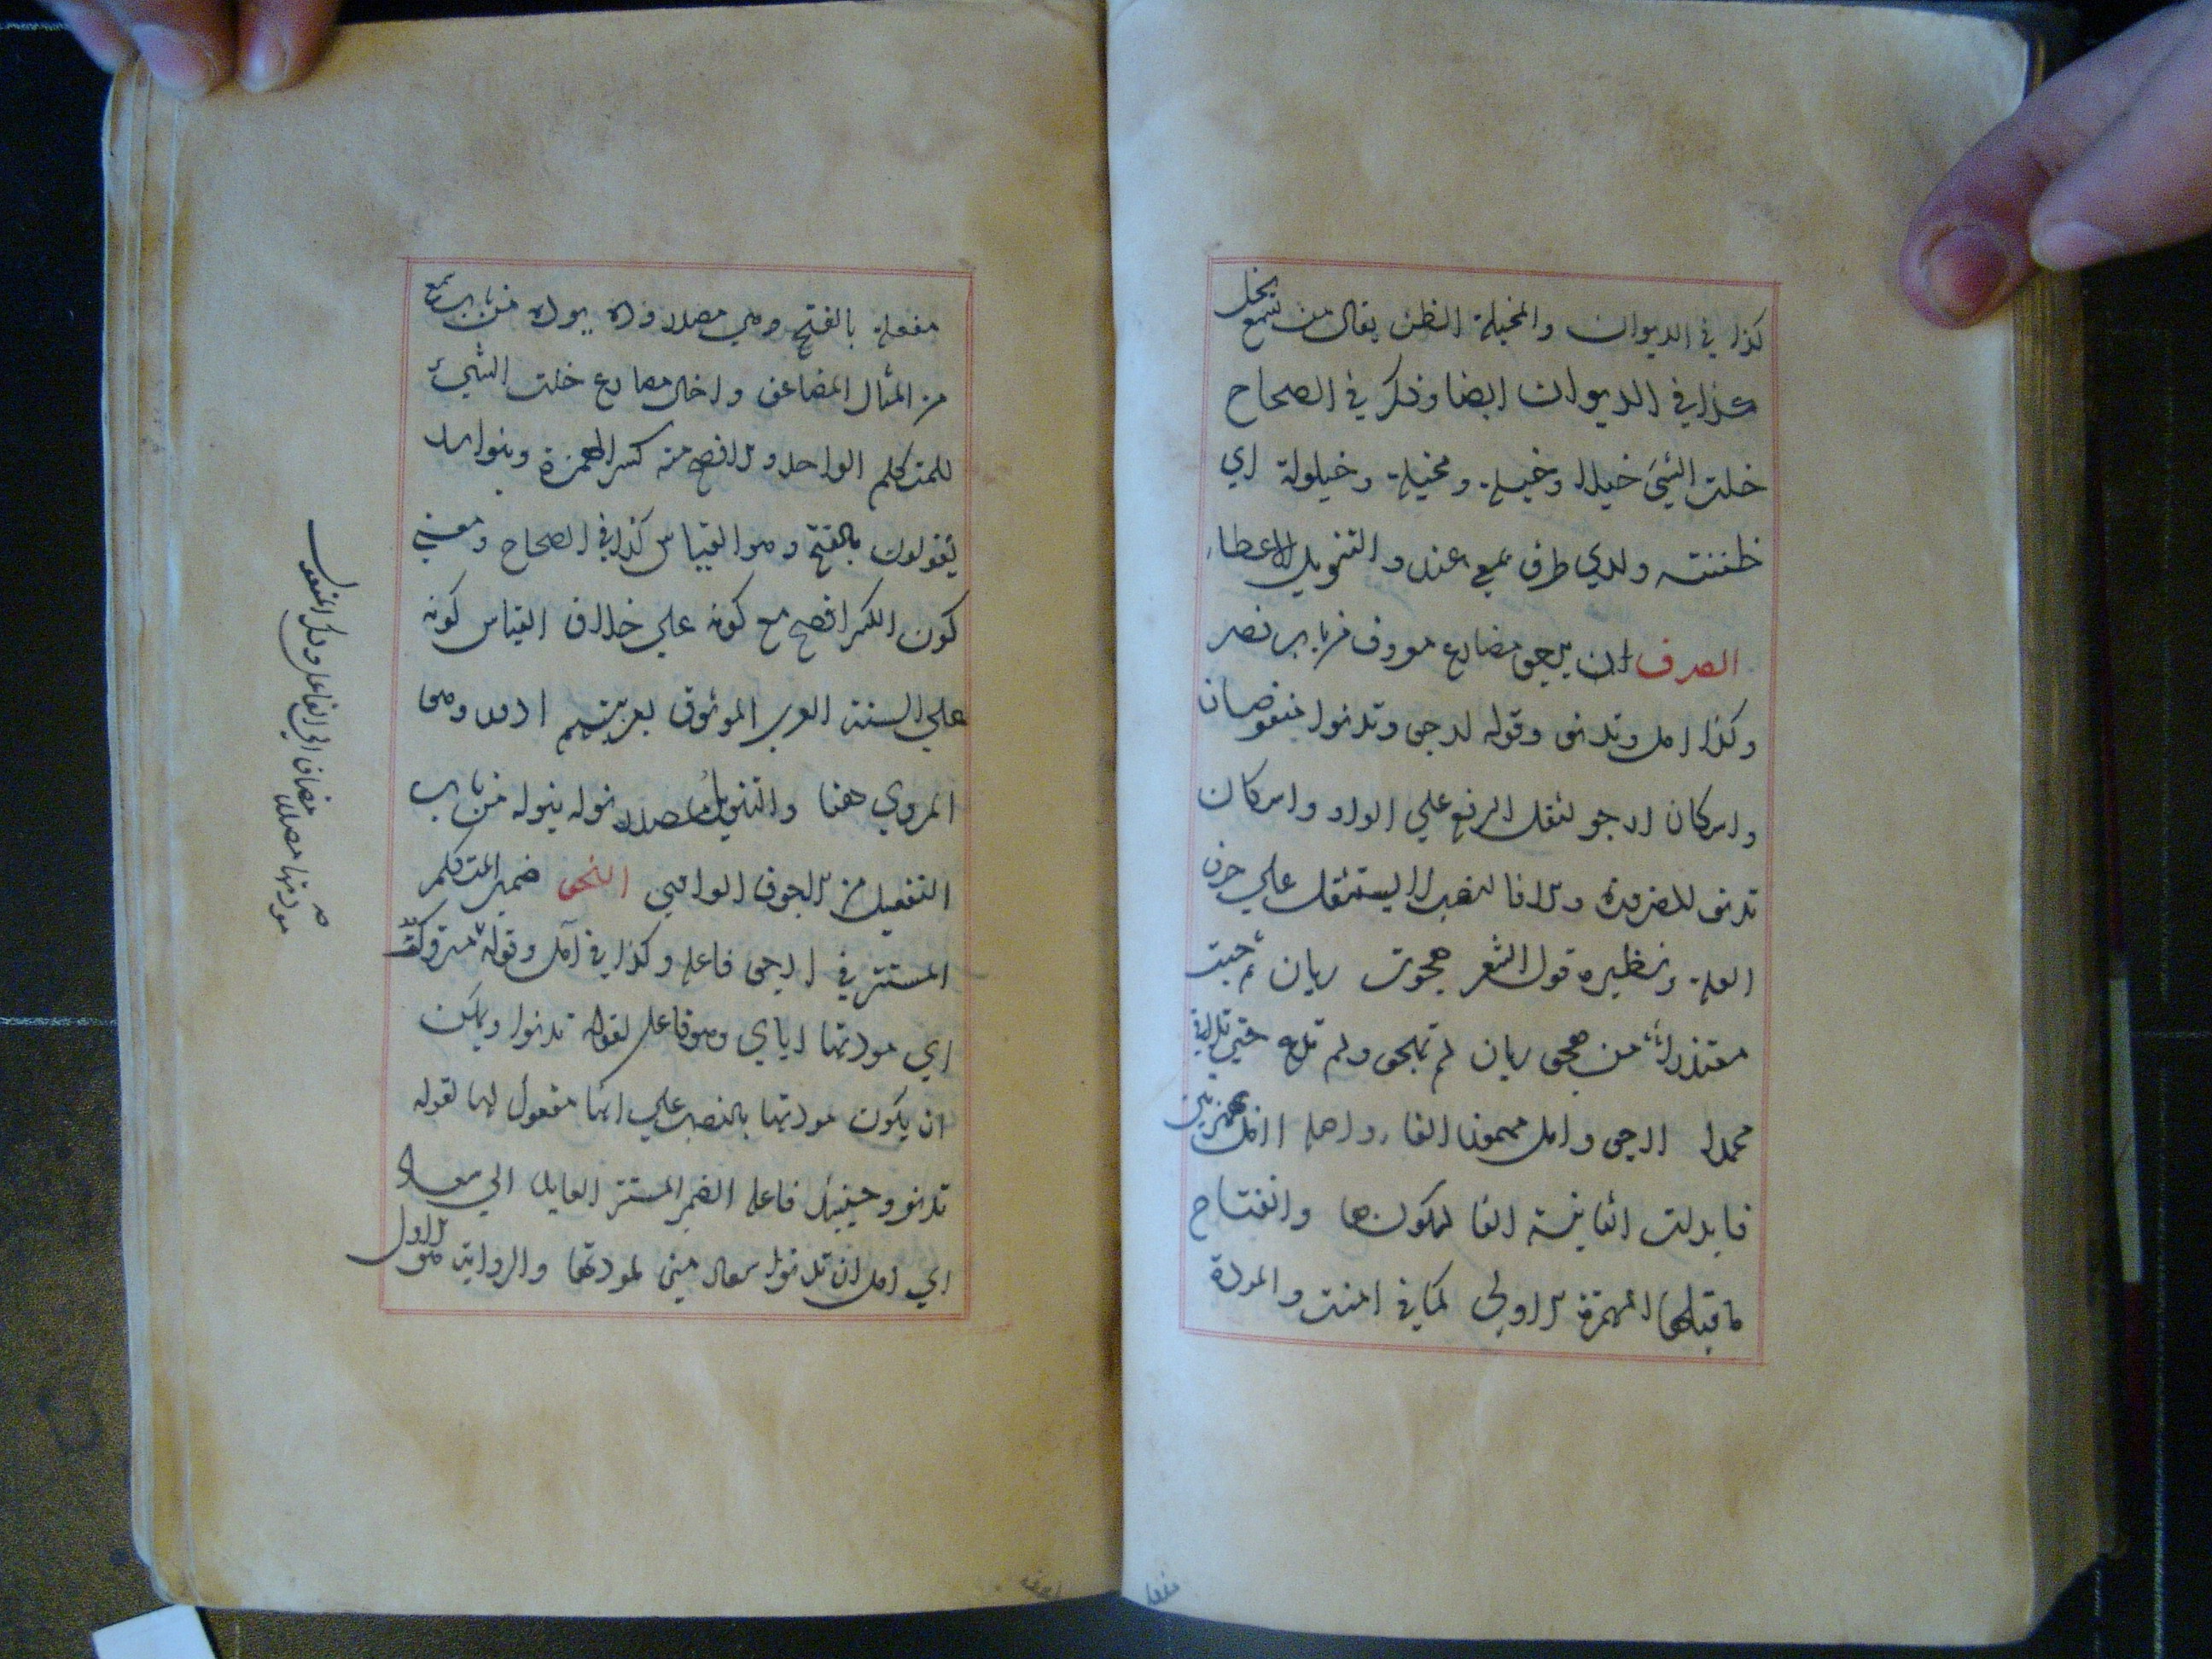 كذا في الديوان والمخيلة الظن يقال من سمع يخل
كذا في الديوان ايضا وذكر في الصحاح
خلت الشيَ خيلا وخيلة ومخيلة وخيلولة اي
ظننته ولدي ظرف بمعني عند والتنويل الاعطاء
الصرف ان يرجو مضارع معروف من باب نصر
وكذا امل وتدنو وقوله ارجو وتدنوا منقوصان
واسكان ارجو لثقل الرفع علي الواو واسكان
تدنو للضرورة والا فالنصب لا يستثقل علي حرف
العلة ونظيره قول الشعر هجوت ريان ثم جيت
معتذرا من هجو ريان لم تهجو ولم تدع حتي تلاقي
محمدا ارجو وامل مهموز الفاء واصله اامل بهمزتين
فابدلت الثانية الفا لسكونها وانفتاح
ما قبلها الهمزة الاولي كما في امنت والمودة
مفعلة بالفتح وهي مصدر وده يوده من باب سمع
من المثال المضاعف واخال مضارع خلت الشيء
للمتكلم الواحد والافصح منه كسر الهمزة وبنو اسد
يقولون بالفتح وهو القياس كذا في الصحاح ومعني
كون الكسر افصح مع كونه علي خلاف القياس كونه
علي السنة العرب الموثوق بعربيتهم ادور وهي
المروي ههنا والتنويل مصدر نوله ينوله من باب
التفعيل من الاجوف الواوي النحو ضمير المتكلم
المستتر في ارجو فاعله وكذا في آمل وقوله متروكة
اي مودتها اياي وهو فاعل لقوله تدنوا ويمكن
ان يكون مودتها بالنصب علي انها مفعول لها لقوله
تدنو وحينئذ فاعله الضمير المستتر العايد الي سعاد
اي امل ان تدنو سعاد مني لمودتها والرواية هو الاول
مودتها مصدر مضاف الي الفاعل وذكر المفعول